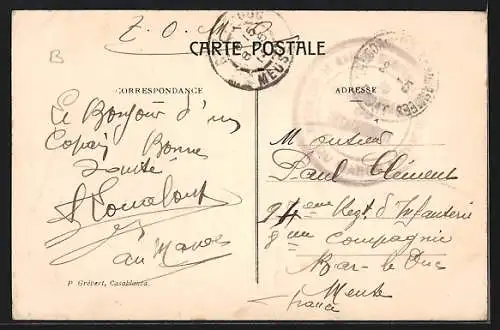 T. O. M.
B
CARTE POSTALE
CORRESPONDANCE
ADRESSE
MEUSE
Le Bonjour d'un
Copain Bonne
Santé
au Maroc
P Grébert, Casablanca.
Monsieur
Paul Clément
94eme Regt d'Infanterie
8eme Compagnie
Bar-le Duc
Meuse
France